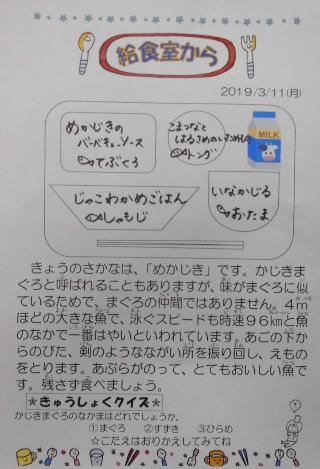 給食室から
2019/3/11(月)
めかじきの
バーベキューソース
てぶくろ
こまつなと
はるさめのいためもの
トング
MILK
じゃこわかめごはん
しゃもじ
いなかじる
おたま
きょうのさかなは、「めかじき」です。かじきま
ぐろと呼ばれることもありますが、味がまぐろに似
ているためで、まぐろの仲間ではありません。4m
ほどの大きな魚で、泳ぐスピードも時速96kmと魚
のなかで一番はやいといわれています。あごの下か
らのびた、剣のようなながい所を振り回し、えもの
をとります。あぶらがのって、とてもおいしい魚で
す。残さず食べましょう。
★きゅうしょくクイズ★
かじきまぐろのなかまはどれでしょうか。
①まぐろ ②すずき ③ひらめ
☆こたえはおりかえしてみてね